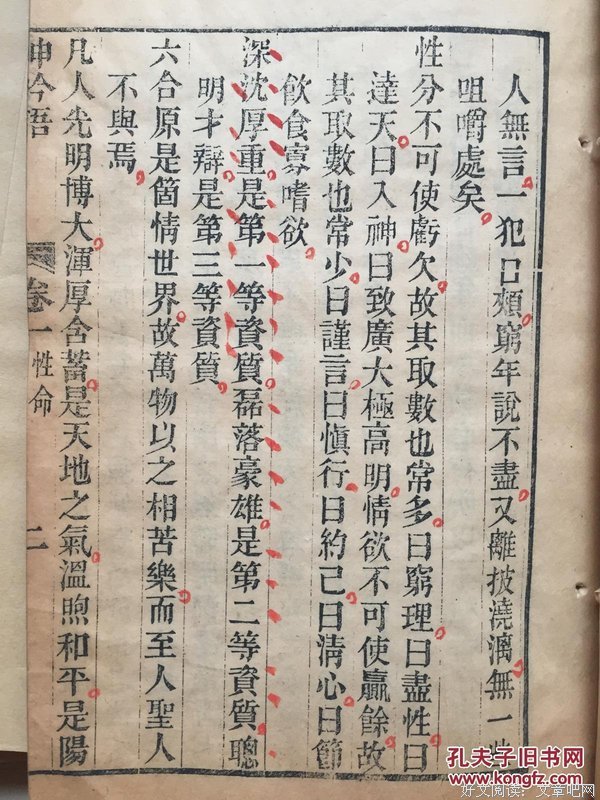 人無言一犯口頰窮年說不盡又離披澆漓無一
咀嚼處矣
性分不可使虧欠故其取數也常多曰窮理曰盡性曰
達天曰入神曰致廣大極高明情欲不可使贏餘故
其取數也常少曰謹言曰慎行曰約己曰清心曰節
飲食寡嗜欲
深沈厚重是第一等資質磊落豪雄是第二等資質聰
明才辯是第三等資質
六合原是箇情世界故萬物以之相苦樂而至人聖人
不與焉
凡人光明博大渾厚含蓄是天地之氣溫煦和平是陽
呻吟語 卷一 性命 二
孔夫子旧书网
www.kongfz.com
好文阅读:文章吧网